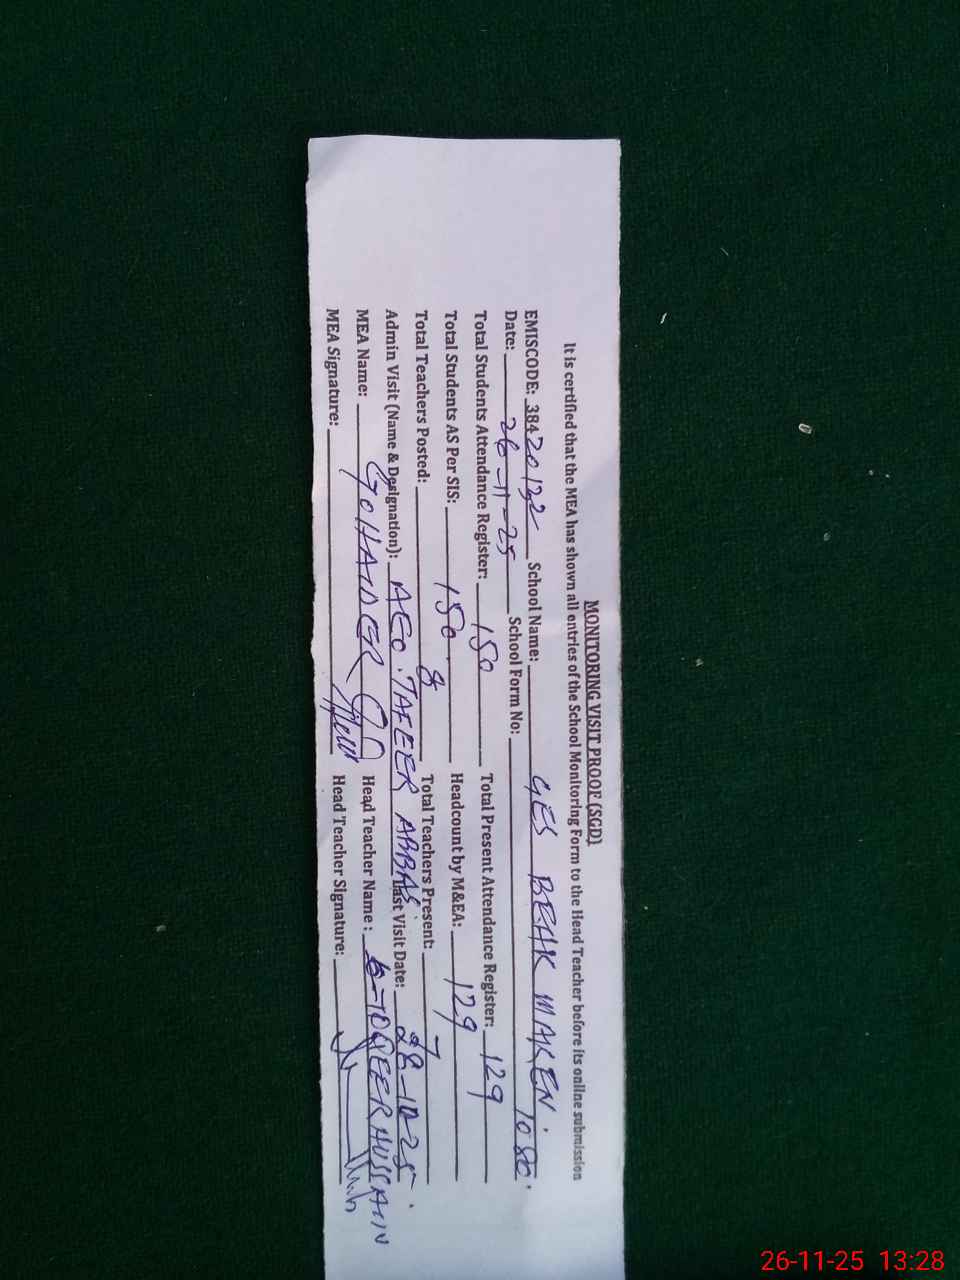 MONITORING VISIT PROOF (SGD)
It is certified that the MEA has shown all entries of the School Monitoring Form to the Head Teacher before its online submission
EMISCODE: 38420132 School Name: GES BEHK MAKEN.
Date: 26-11-25 School Form No:
Total Students Attendance Register: 150 Total Present Attendance Register: 129
Total Students AS Per SIS: 150 Headcount by M&EA: 129
Total Teachers Posted: 8 Total Teachers Present: 7
Admin Visit (Name & Designation): AEO. ABBAS Last Visit Date: 28-10-25.
MEA Name: Head Teacher Name: HUSSAIN
MEA Signature: Head Teacher Signature:
26-11-25 13:28